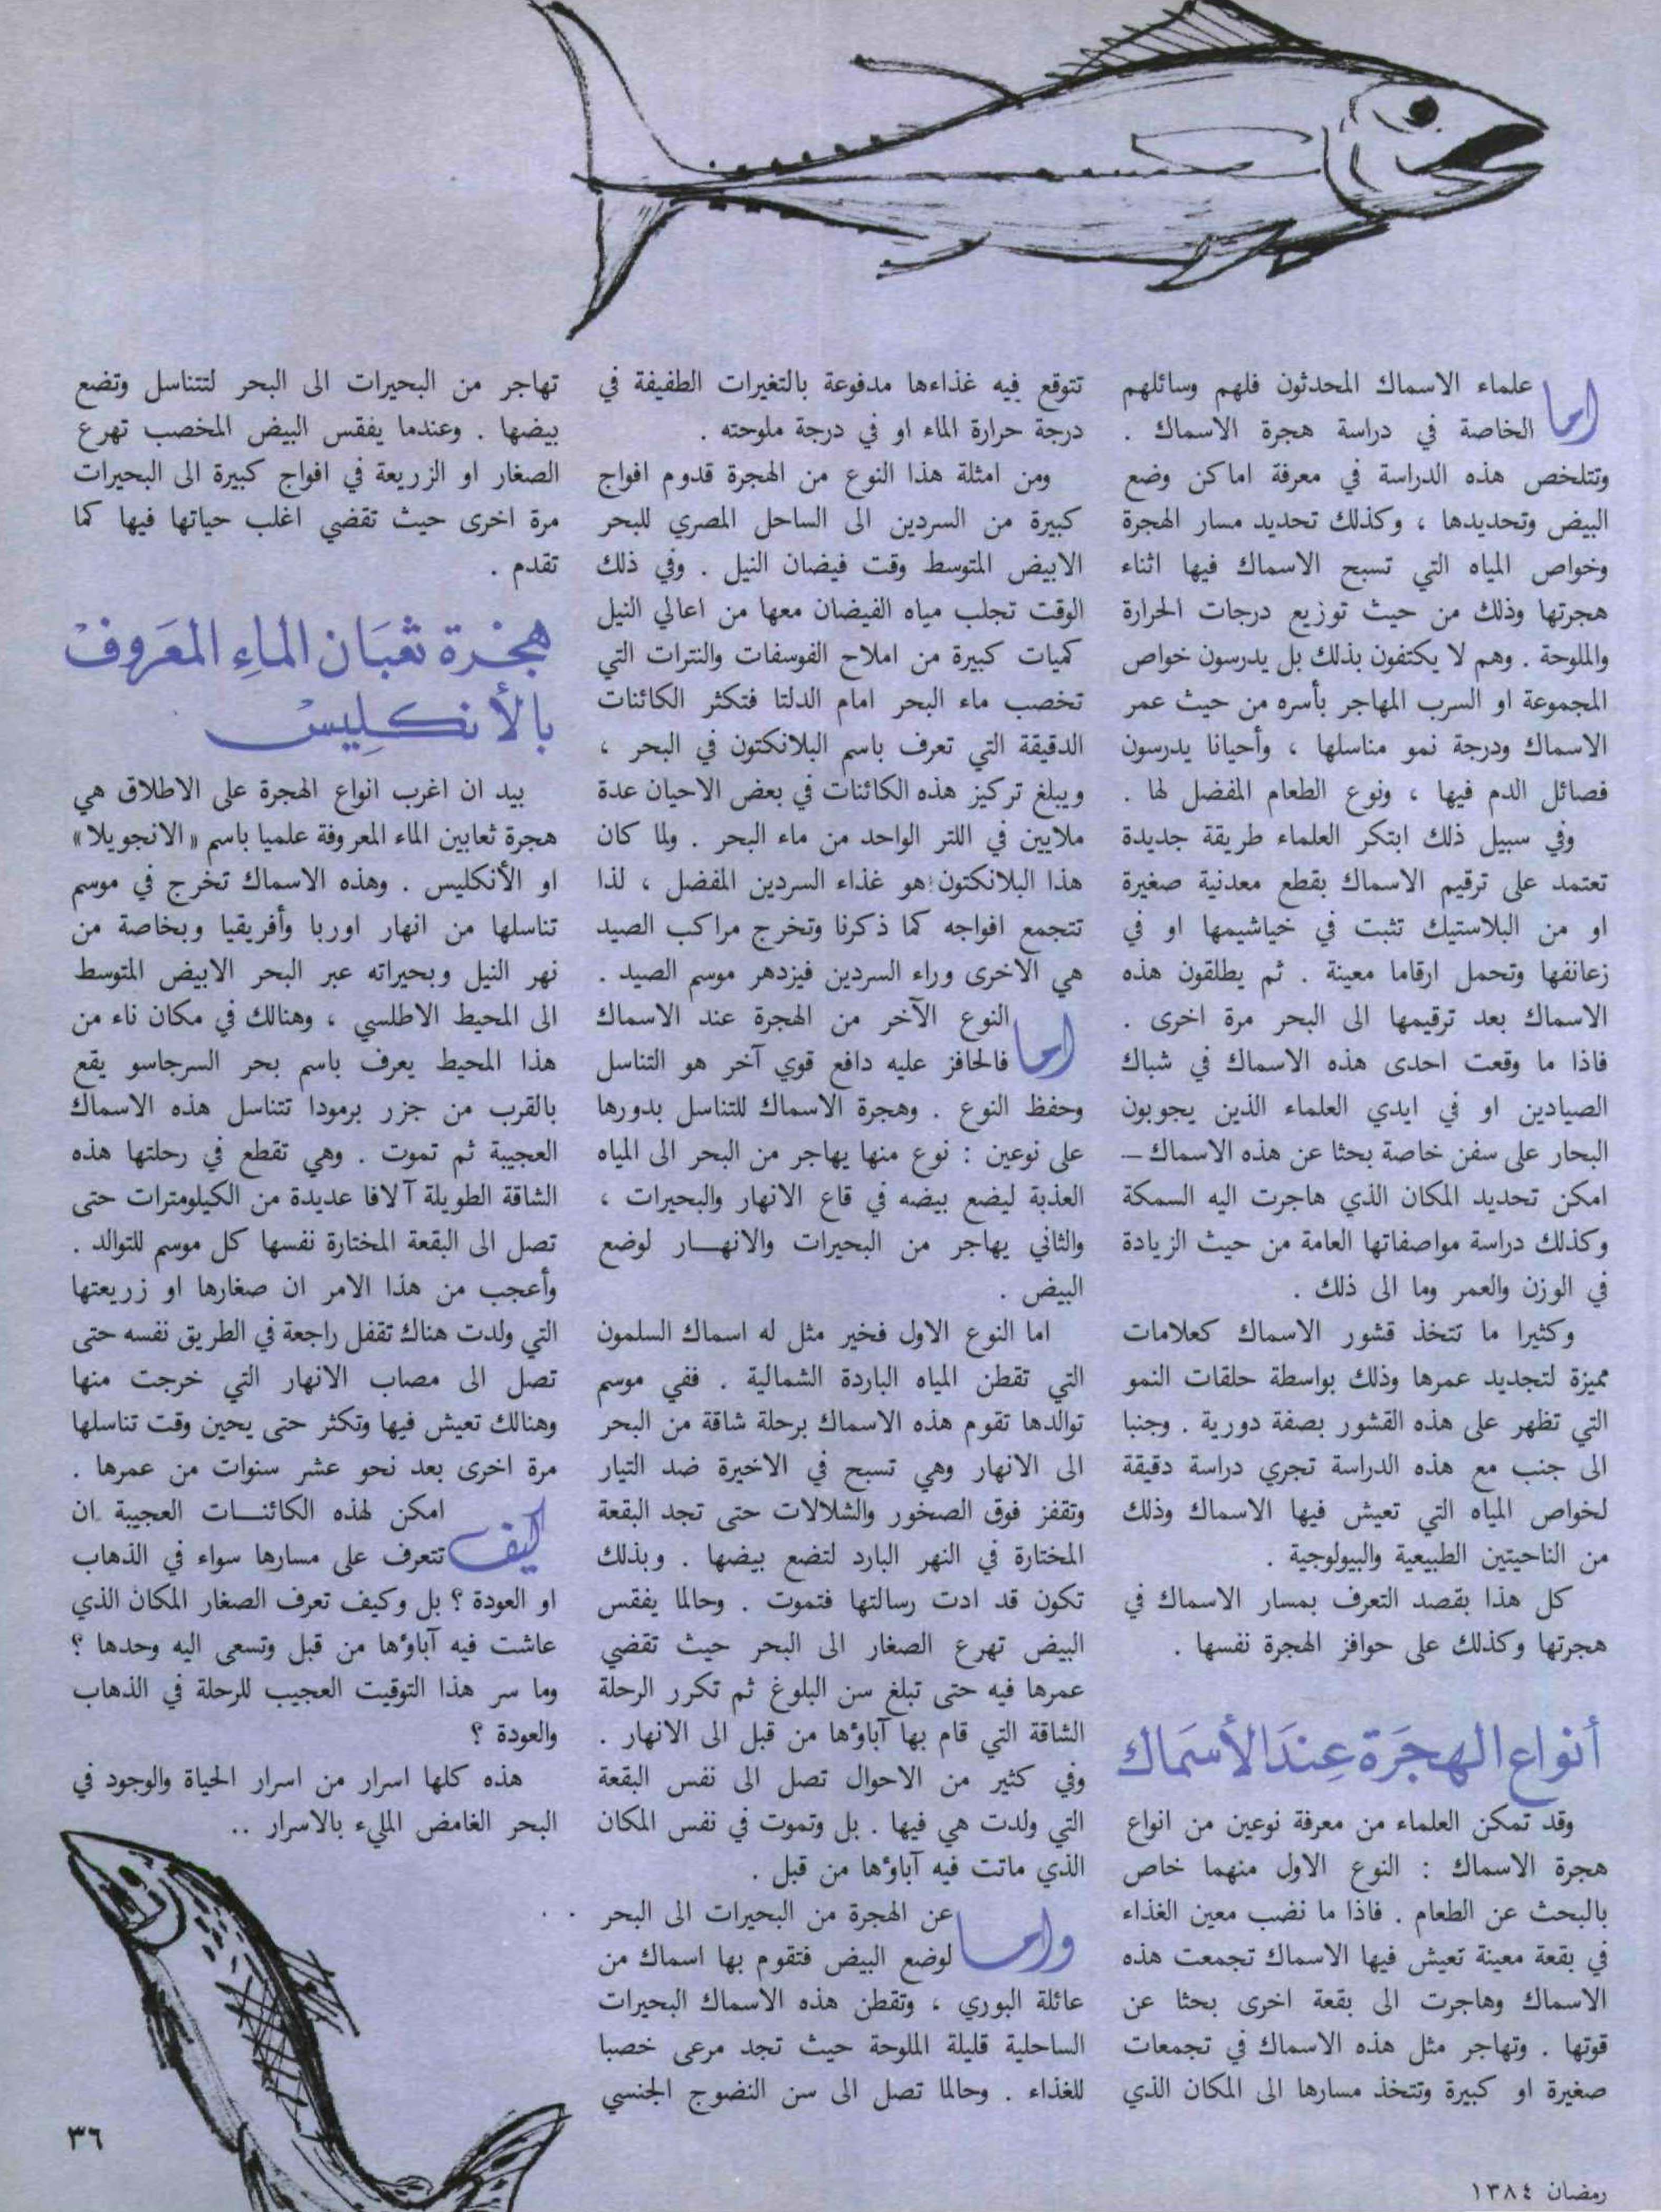 اما علماء الاسماك المحدثون فلهم وسائلهم
الخاصة في دراسة هجرة الاسماك .
وتتلخص هذه الدراسة في معرفة اماكن وضع
البيض وتحديدها ، وكذلك تحديد مسار الهجرة
وخواص المياه التي تسبح الاسماك فيها اثناء
هجرتها وذلك من حيث توزيع درجات الحرارة
والملوحة . وهم لا يكتفون بذلك بل يدرسون خواص
المجموعة او السرب المهاجر بأسره من حيث عمر
الاسماك ودرجة نمو مناسلها ، وأحيانا يدرسون
فصائل الدم فيها ، ونوع الطعام المفضل لها .
وفي سبيل ذلك ابتكر العلماء طريقة جديدة
تعتمد على ترقيم الاسماك بقطع معدنية صغيرة
او من البلاستيك تثبت في خياشيمها او في
زعانفها وتحمل ارقاما معينة . ثم يطلقون هذه
الاسماك بعد ترقيمها الى البحر مرة اخرى .
فاذا ما وقعت احدى هذه الاسماك في شباك
الصيادين او في ايدي العلماء الذين يجوبون
البحار على سفن خاصة بحثا عن هذه الاسماك –
امكن تحديد المكان الذي هاجرت اليه السمكة
وكذلك دراسة مواصفاتها العامة من حيث الزيادة
في الوزن والعمر وما الى ذلك .
وكثيرا ما تتخذ قشور الاسماك كعلامات
مميزة لتجديد عمرها وذلك بواسطة حلقات النمو
التي تظهر على هذه القشور بصفة دورية . وجنبا
الى جنب مع هذه الدراسة تجري دراسة دقيقة
لخواص المياه التي تعيش فيها الاسماك وذلك
من الناحيتين الطبيعية والبيولوجية .
كل هذا بقصد التعرف بمسار الاسماك في
هجرتها وكذلك على حوافز الهجرة نفسها .
أنواع الهجَرَة عِندَ الأسمَاك
وقد تمكن العلماء من معرفة نوعين من انواع
هجرة الاسماك : النوع الاول منهما خاص
بالبحث عن الطعام . فاذا ما نضب معين الغذاء
في بقعة معينة تعيش فيها الاسماك تجمعت هذه
الاسماك وهاجرت الى بقعة اخرى بحثا عن
قوتها . وتهاجر مثل هذه الاسماك في تجمعات
صغيرة او كبيرة وتتخذ مسارها الى المكان الذي
تتوقع فيه غذاءها مدفوعة بالتغيرات الطفيفة في
درجة حرارة الماء او في درجة ملوحته .
ومن امثلة هذا النوع من الهجرة قدوم افواج
كبيرة من السردين الى الساحل المصري للبحر
الابيض المتوسط وقت فيضان النيل . وفي ذلك
الوقت تجلب مياه الفيضان معها من اعالي النيل
كميات كبيرة من املاح الفوسفات والنترات التي
تخصب ماء البحر امام الدلتا فتكثر الكائنات
الدقيقة التي تعرف باسم البلانكتون في البحر ،
ويبلغ تركيز هذه الكائنات في بعض الاحيان عدة
ملايين في اللتر الواحد من ماء البحر . ولما كان
هذا البلانكتون هو غذاء السردين المفضل ، لذا
تتجمع افواجه كما ذكرنا وتخرج مراكب الصيد
هي الاخرى وراء السردين فيزدهر موسم الصيد .
اما النوع الآخر من الهجرة عند الاسماك
فالحافز عليه دافع قوي آخر هو التناسل
وحفظ النوع . وهجرة الاسماك للتناسل بدورها
على نوعين : نوع منها يهاجر من البحر الى المياه
العذبة ليضع بيضه في قاع الانهار والبحيرات ،
والثاني يهاجر من البحيرات والانهـــار لوضع
البيض .
اما النوع الاول فخير مثل له اسماك السلمون
التي تقطن المياه الباردة الشمالية . ففي موسم
توالدها تقوم هذه الاسماك برحلة شاقة من البحر
الى الانهار وهي تسبح في الاخيرة ضد التيار
وتقفز فوق الصخور والشلالات حتى تجد البقعة
المختارة في النهر البارد لتضع بيضها . وبذلك
تكون قد ادت رسالتها فتموت . وحالما يفقس
البيض تهرع الصغار الى البحر حيث تقضي
عمرها فيه حتى تبلغ سن البلوغ ثم تكرر الرحلة
الشاقة التي قام بها آباؤها من قبل الى الانهار .
وفي كثير من الاحوال تصل الى نفس البقعة
التي ولدت هي فيها . بل وتموت في نفس المكان
الذي ماتت فيه آباؤها من قبل .
واما عن الهجرة من البحيرات الى البحر
لوضع البيض فتقوم بها اسماك من
عائلة البوري ، وتقطن هذه الاسماك البحيرات
الساحلية قليلة الملوحة حيث تجد مرعى خصبا
للغذاء . وحالما تصل الى سن النضوج الجنسي
تهاجر من البحيرات الى البحر لتتناسل وتضع
بيضها . وعندما يفقس البيض المخصب تهرع
الصغار او الزريعة في افواج كبيرة الى البحيرات
مرة اخرى حيث تقضي اغلب حياتها فيها كما
تقدم .
هجْرة ثعبَان الماءِ المعَروفْ
بالأنكليِسْ
بيد ان اغرب انواع الهجرة على الاطلاق هي
هجرة ثعابين الماء المعروفة علميا باسم « الانجويلا »
او الأنكليس . وهذه الاسماك تخرج في موسم
تناسلها من انهار اوربا وأفريقيا وبخاصة من
نهر النيل وبحيراته عبر البحر الابيض المتوسط
الى المحيط الاطلسي ، وهنالك في مكان ناء من
هذا المحيط يعرف باسم بحر السرجاسو يقع
بالقرب من جزر برمودا تتناسل هذه الاسماك
العجيبة ثم تموت . وهي تقطع في رحلتها هذه
الشاقة الطويلة آلافا عديدة من الكيلومترات حتى
تصل الى البقعة المختارة نفسها كل موسم للتوالد .
وأعجب من هذا الامر ان صغارها او زريعتها
التي ولدت هناك تقفل راجعة في الطريق نفسه حتى
تصل الى مصاب الانهار التي خرجت منها
وهنالك تعيش فيها وتكثر حتى يحين وقت تناسلها
مرة اخرى بعد نحو عشر سنوات من عمرها .
كيف امكن لهذه الكائنـــات العجيبة ان
تتعرف على مسارها سواء في الذهاب
او العودة ؟ بل وكيف تعرف الصغار المكان الذي
عاشت فيه آباؤها من قبل وتسعى اليه وحدها ؟
وما سر هذا التوقيت العجيب للرحلة في الذهاب
والعودة ؟
هذه كلها اسرار من اسرار الحياة والوجود في
البحر الغامض المليء بالاسرار ..
٣٦
رمضان ١٣٨٤